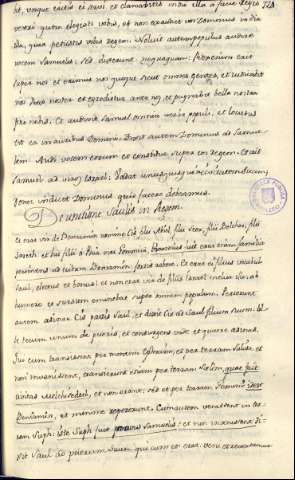 it, vosque eritis ei servi, et clamabitis in die illa a facie Regis
vestri quem elegistis vobis, et non exaudiet vos Dominus in die
illa, quia petiistis vobis regem. Noluit autem populus audire
vocem Samuelis, sed dixerunt nequaquam: Rex enim erit
super nos et erimus nos quoque sicut omnes gentes, et iudicabit
nos rex noster et egredietur ante nos et pugnabit bella nostra
pro nobis. Et audivit Samuel omnia verba populi, et locutus
est ea in auribus Domini. Dixit autem Dominus ad Samue
lem. Audi vocem eorum et constitue super eos regem. Et ait
Samuel ad viros Israel: Vadat unusquisque in civitatem suam,
donec
De unctione Saulis in Regem.
Et erat vir de Benjamin nomine Cis filius Abiel, filii Seor, filii
Saul, electus et bonus, et non erat vir de filiis Israel melior illo ab
humero et sursum eminebat super omnem populum. Perierant
autem asinae Cis patris Saul, et dixit Cis ad Saul filium suum. Tol
le tecum unum de pueris, et consurgens vade et quaere asinas.
Qui cum transissent per montem Ephraim, et per terram Salisa et
non invenissent, transierunt etiam per terram Salim, quae fuit
civitas Melchisedech, et non erant; sed et per terram Jemini
Benjamin, et minime repererunt. Cum autem venissent in ter
ram Suph: iste Suph fuit Samuelis: et non invenissent di
xit Saul ad puerum suum qui erat cum eo: veni revertamur